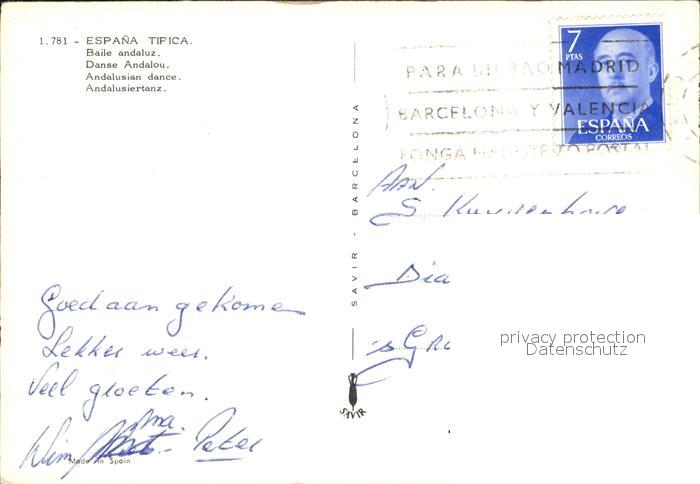 1.781 - ESPAÑA TIPICA.
Baile andaluz.
Danse Andalou.
Andalusian dance.
Andalusiertanz.
7
PTAS
ESPAÑA
CORREOS
PARA BILBAO MADRID
BARCELONA Y VALENCIA
PONGA DISTRITO POSTAL
SAVIR - BARCELONA
SAVIR
AAN.
S.
Dia
privacy protection
Datenschutz
Goed aan gekome
Lekker weer.
Veel groeten.
Wim Peter
Made in Spain